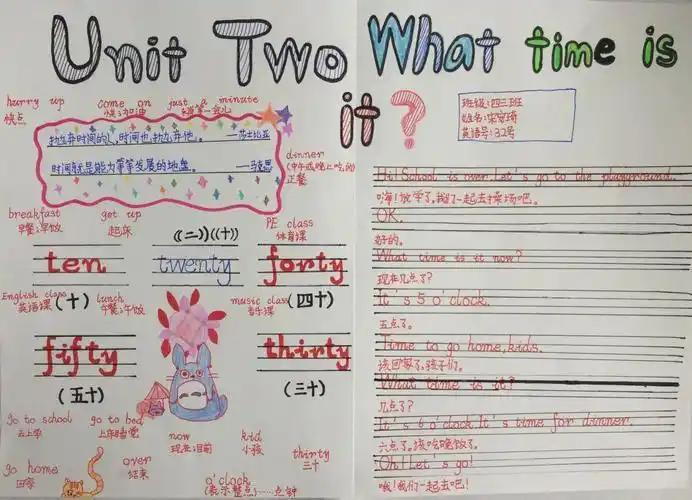 Unit Two What time is it?
hurry up come on just a minute
快点 快;加油 稍等一会儿
抛弃时间的人,时间也抛弃他。 ——莎士比亚
时间就是能力等等发展的地盘。 ——马克思
dinner
(中午或晚上吃的)
正餐
breakfast get up
早餐;早饭 起床
PE class
体育课
((二))((十))
ten twenty forty
(十) (四十)
English class
英语课
lunch
午餐;午饭
music class
音乐课
fifty thirty
(五十) (三十)
go to school go to bed
去上学 上床睡觉
now kid
现在;目前 小孩
thirty
三十
go home over
回家 结束
o'clock
(表示整点)……点钟
班级:四三班
姓名:
英语号:32号
Hi! School is over. Let's go to the playground.
嗨!放学了,我们一起去操场吧。
OK.
好的。
What time is it now?
现在几点了?
It's 5 o'clock.
五点了。
Time to go home, kids.
该回家了,孩子们。
What time is it?
几点了?
It's 6 o'clock. It's time for dinner.
六点了。该吃晚饭了。
Oh! Let's go!
哦!我们一起去吧!